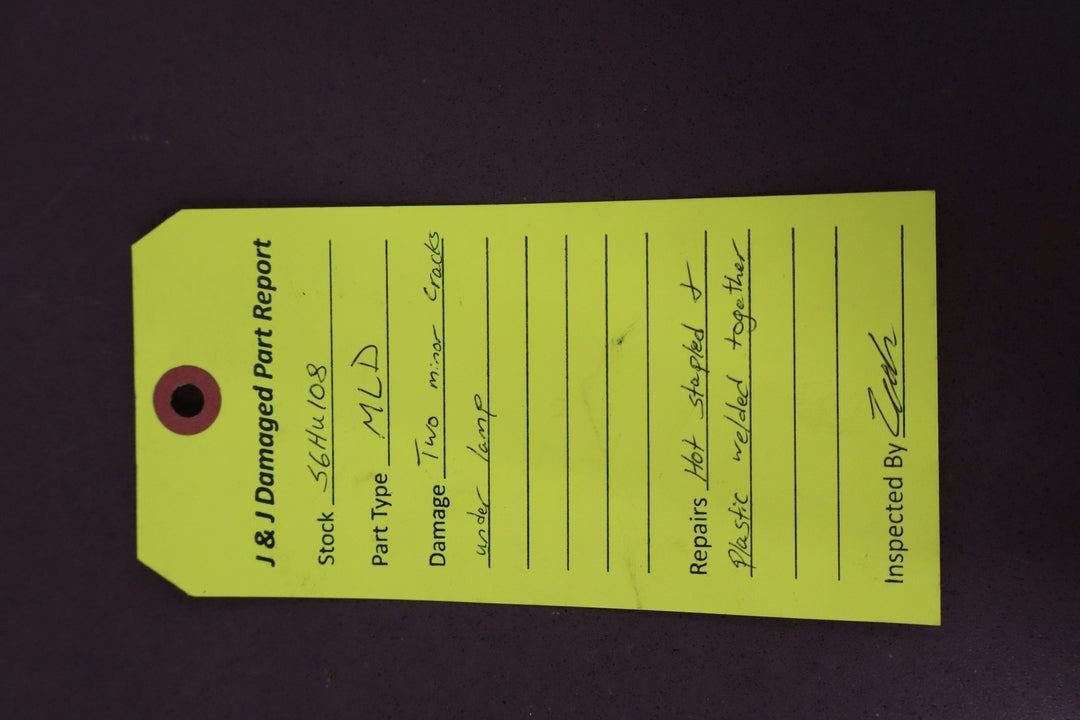 J & J Damaged Part Report
Stock S6Hu108
Part Type MLD
Damage Two minor cracks
under lamp
Repairs Hot stapled &
Plastic welded together
Inspected By Zach